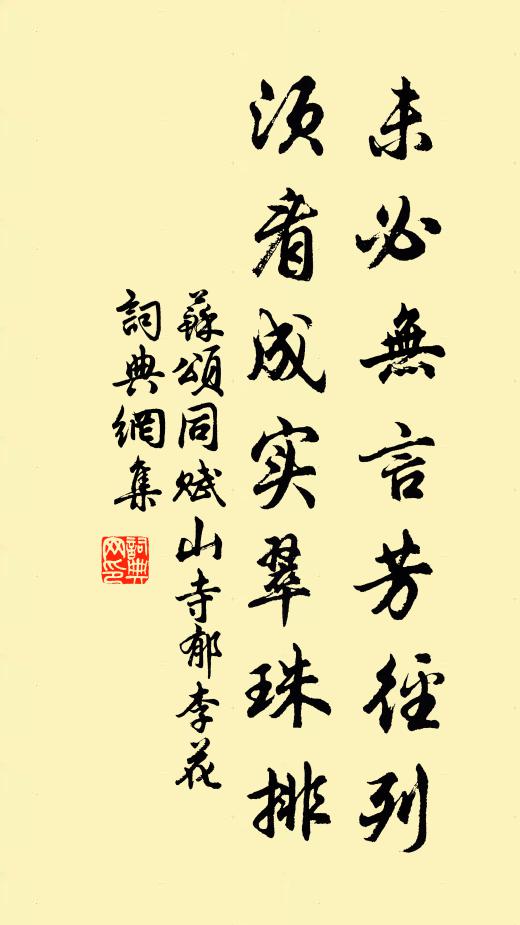 未必無言芳徑列
須看成实翠珠排
蘇頌同賦山寺郁李花
詞典網集
詞典網印